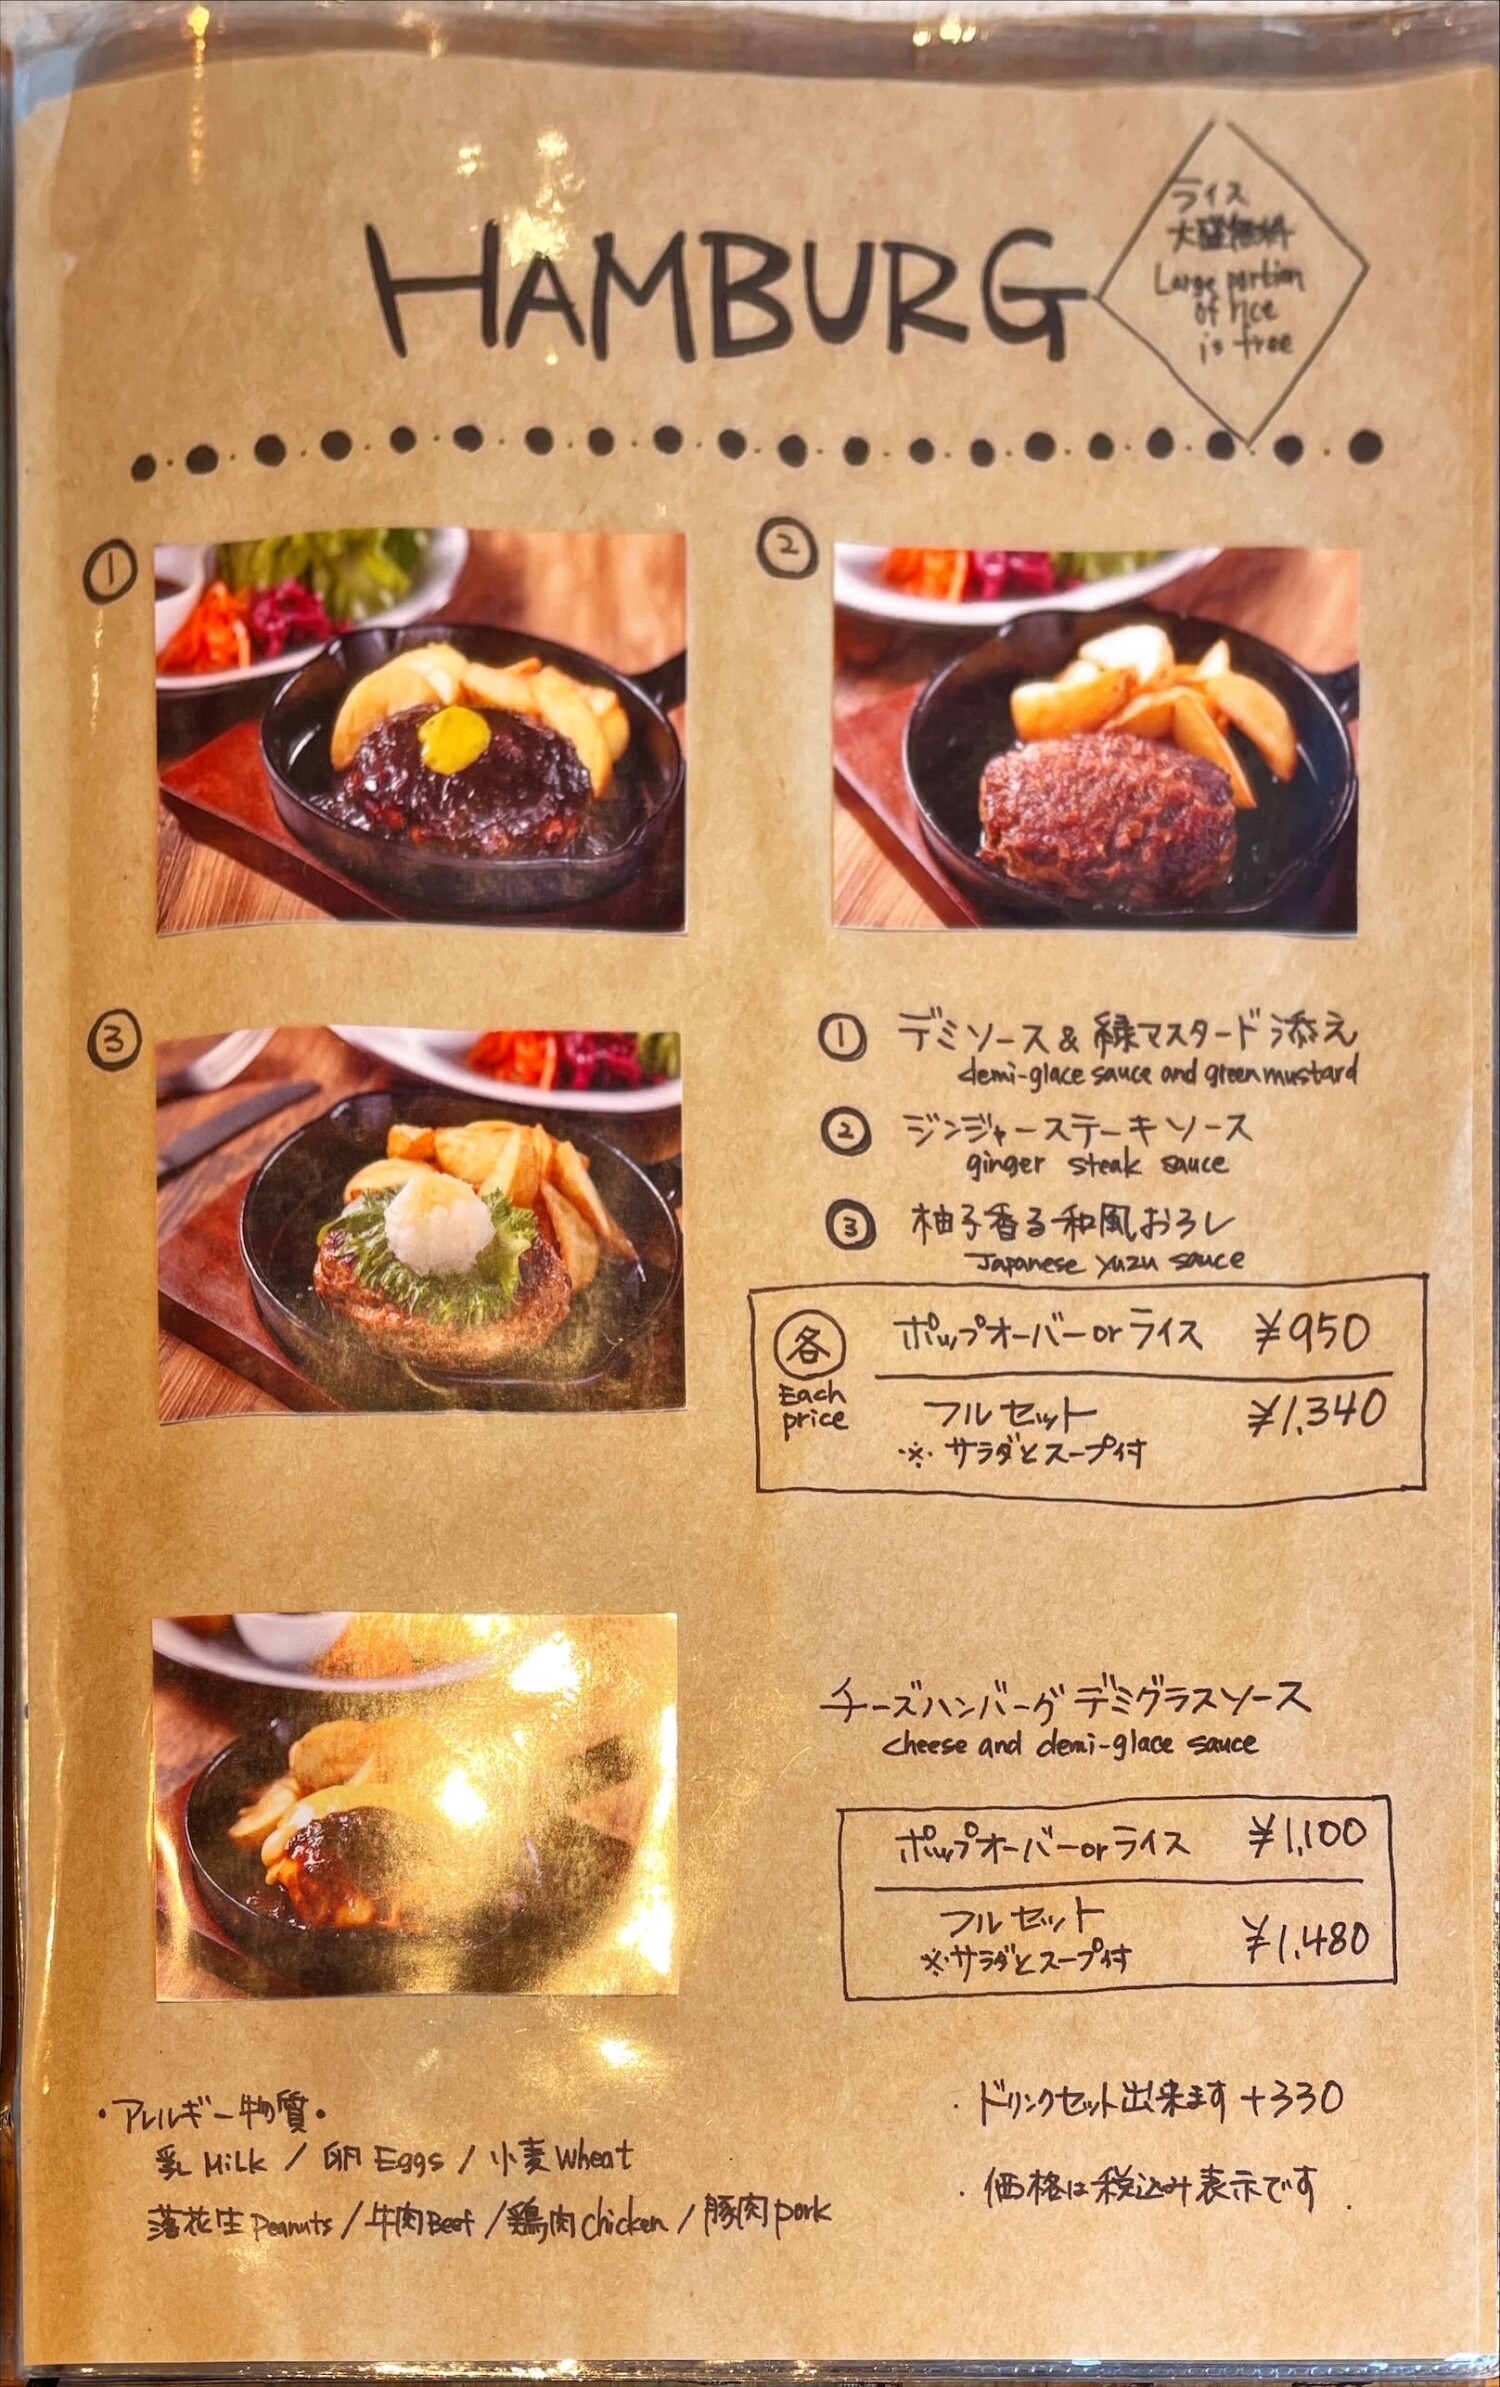 HAMBURG
ライス
大盛無料
Large portion
of rice
is free
①
②
③
① デミソース & 緑マスタード添え
demi-glace sauce and green mustard
② ジンジャーステーキソース
ginger steak sauce
③ 柚子香る和風おろし
Japanese yuzu sauce
各
Each
price
ポップオーバー or ライス ¥950
フルセット ¥1,340
※ サラダとスープ付
チーズハンバーグ デミグラスソース
cheese and demi-glace sauce
ポップオーバー or ライス ¥1,100
フルセット ¥1,480
※サラダとスープ付
・アレルギー物質・
乳 Milk / 卵 Eggs / 小麦 Wheat
落花生 Peanuts / 牛肉 Beef / 鶏肉 chicken / 豚肉 pork
・ドリンクセット出来ます +330
・価格は税込み表示です.